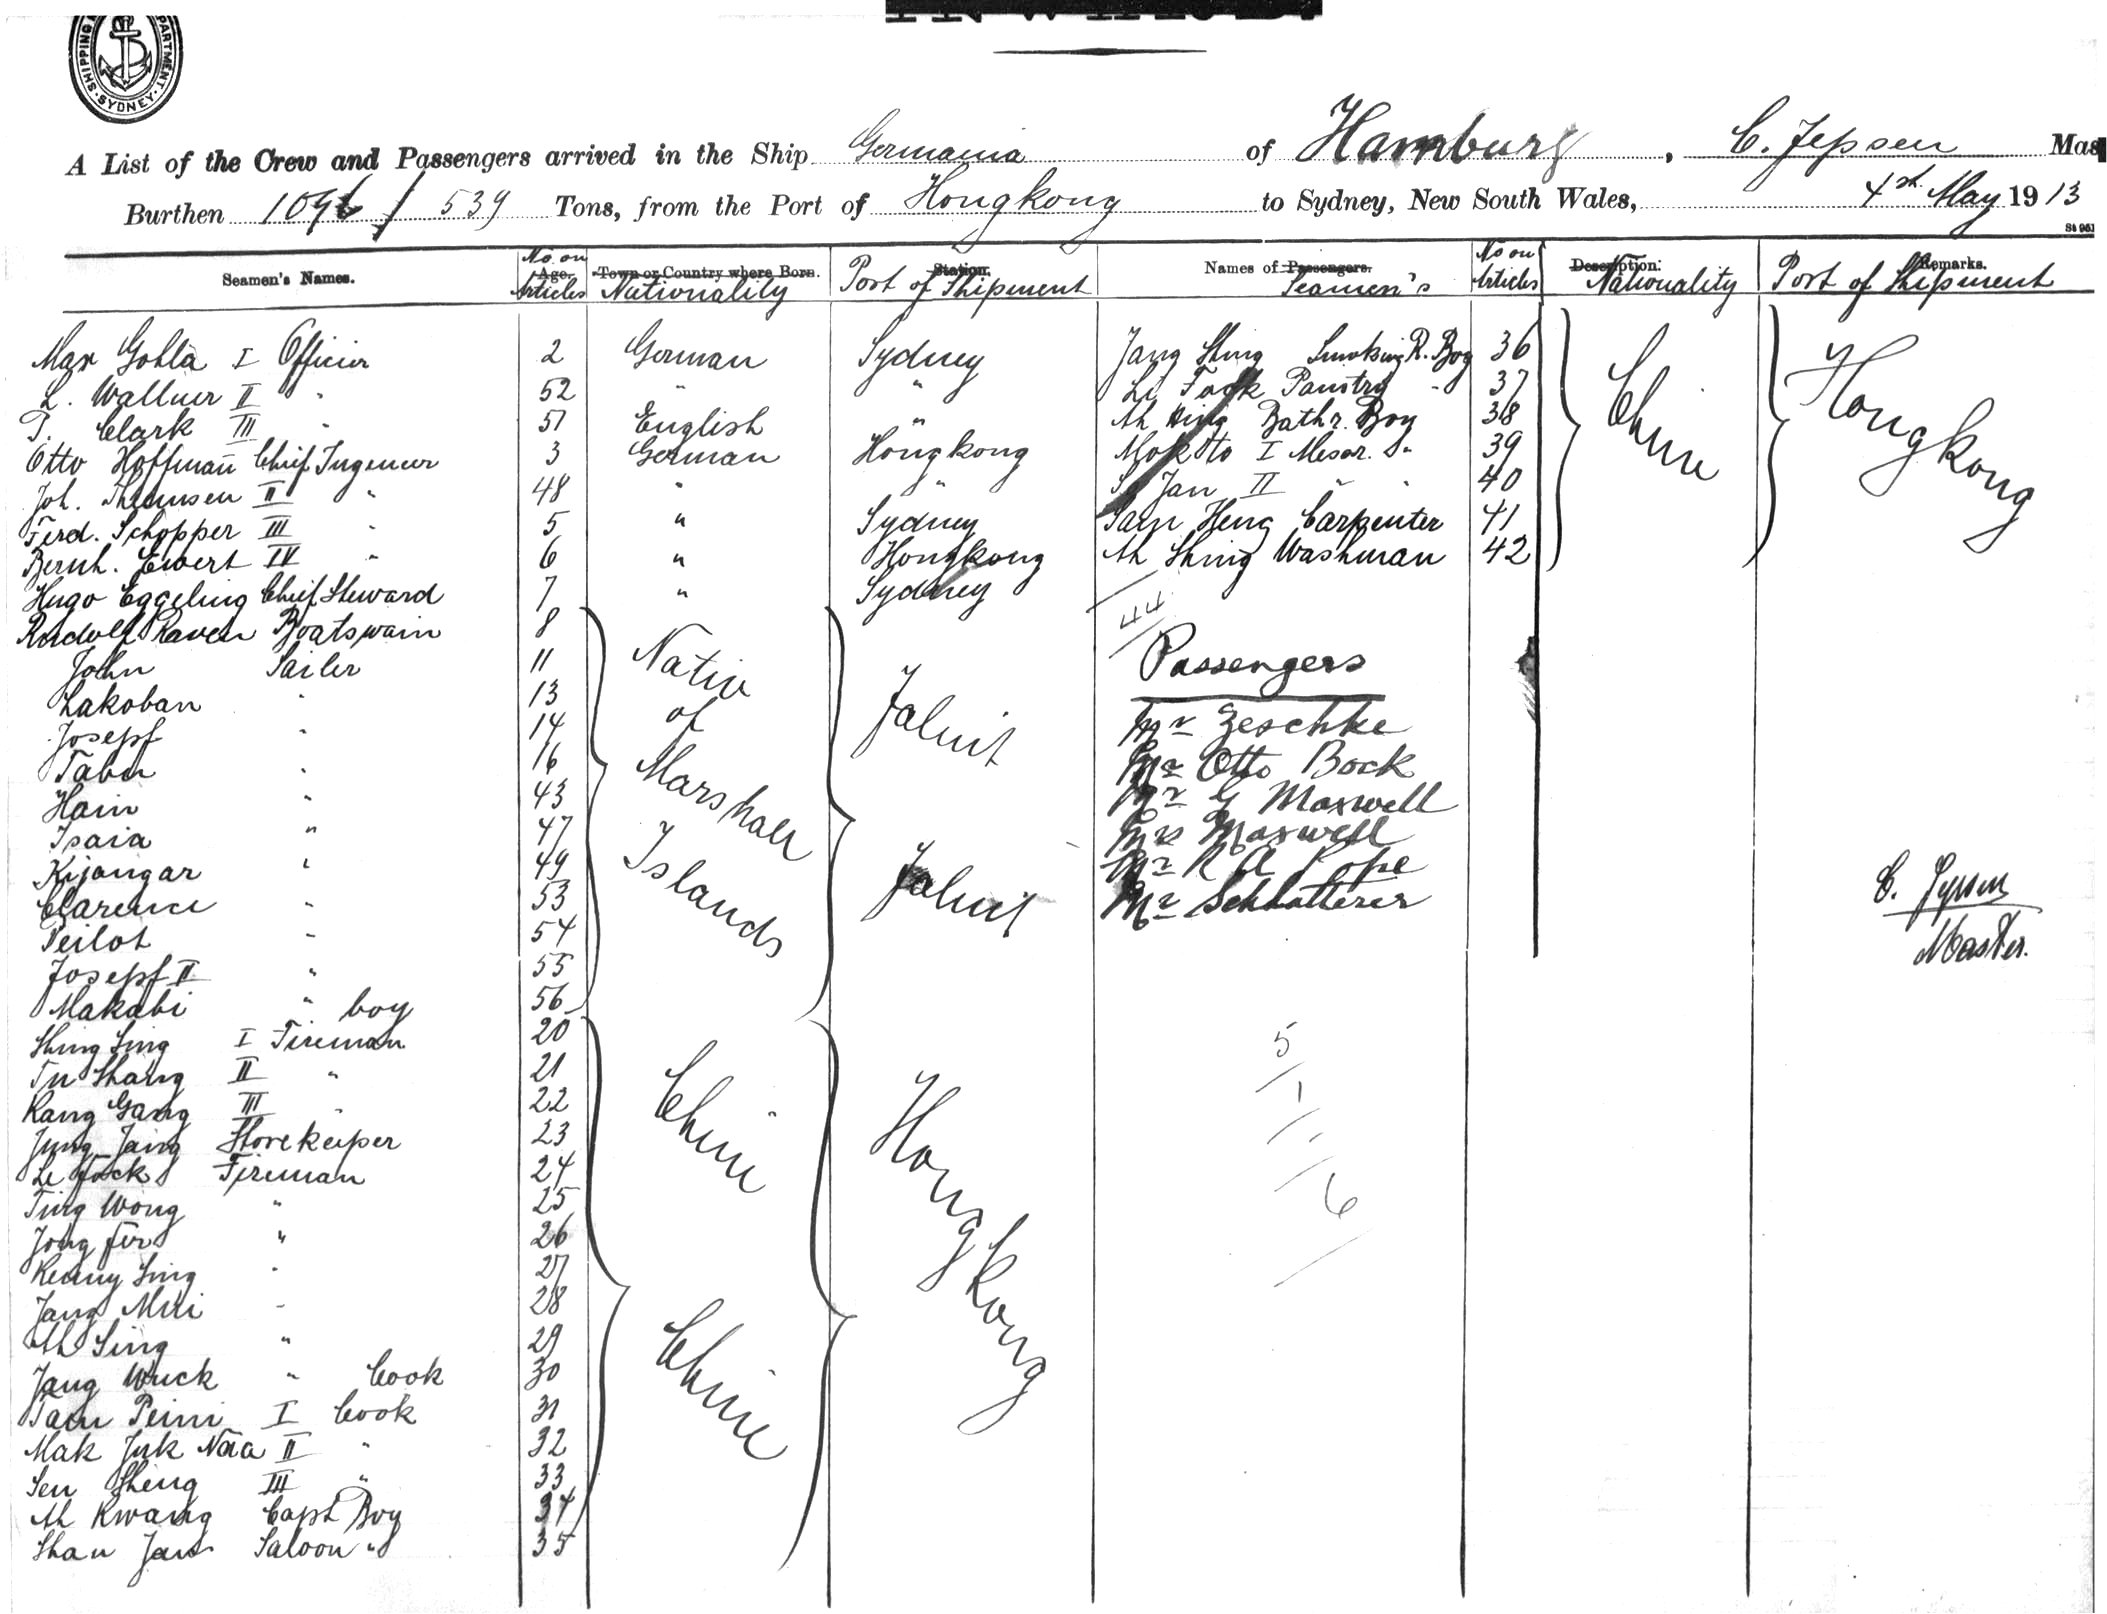 SHIPPING DEPARTMENT SYDNEY
A List of the Crew and Passengers arrived in the Ship Germania of Hamburg, C. Jepsen Mas
Burthen 1096 / 539 Tons, from the Port of Hongkong to Sydney, New South Wales, 4th May 1913
St 951
Seamen's Names. No on Age. Articles Town or Country where Born. Nationality Station. Port of Shipment Names of Passengers. Seamen's No on Articles Description. Nationality Remarks. Port of Shipment
Max Gohla I Officier 2 German Sydney
L. Wallner II " 52 " "
T. Clark III " 51 English "
Otto Hoffmann Chief Ingeneur 3 German Hongkong
Joh. Thomsen II " 48 " "
Ferd. Schopper III " 5 " Sydney
Bernh. Ewert IV " 6 " Hongkong
Hugo Eggeling Chief Steward 7 " Sydney
Rudolf Raven Boatswain 8
John Sailer 11
Lakoban " 13
Josepf " 14
Tabu " 16
Hain " 43
Isaia " 47
Kijongar " 49
Clarence " 53
Peilot " 54
Josepf II " 55
Makabi " boy 56
Nativ of Marshall Islands
Jaluit
Jaluit
Shing Sing I Fireman 20
Tu Shang II " 21
Kang Gang III " 22
Jung Jang Storekeeper 23
Le Fock Fireman 24
Ting Wong " 25
Jong Fer " 26
Keuny Sing " 27
Jang Mui " 28
Ah Sing " 29
Jang Wuck " Cook 30
Tam Peini I Cook 31
Mak Juk Naa II " 32
Sen Sheng III " 33
Ah Kwang Capt Boy 34
Shau Jan Saloon " 35
Chine
Chine
Hongkong
Jang Shing Smoking R. Boy 36
Li Fock Pantry " 37
Ah King Bathr. Boy 38
Mok to I Messr. " 39
Jan II " " 40
Sam Heng Carpenter 41
Ah Shing Washman 42
Chine
Hongkong
44
Passengers
Mr Zeschke
Mr Otto Bock
Mr G Maxwell
Mrs Maxwell
Mr R A Pope
Mr Schlatterer
C. Jepsen
Master.
5
1
6